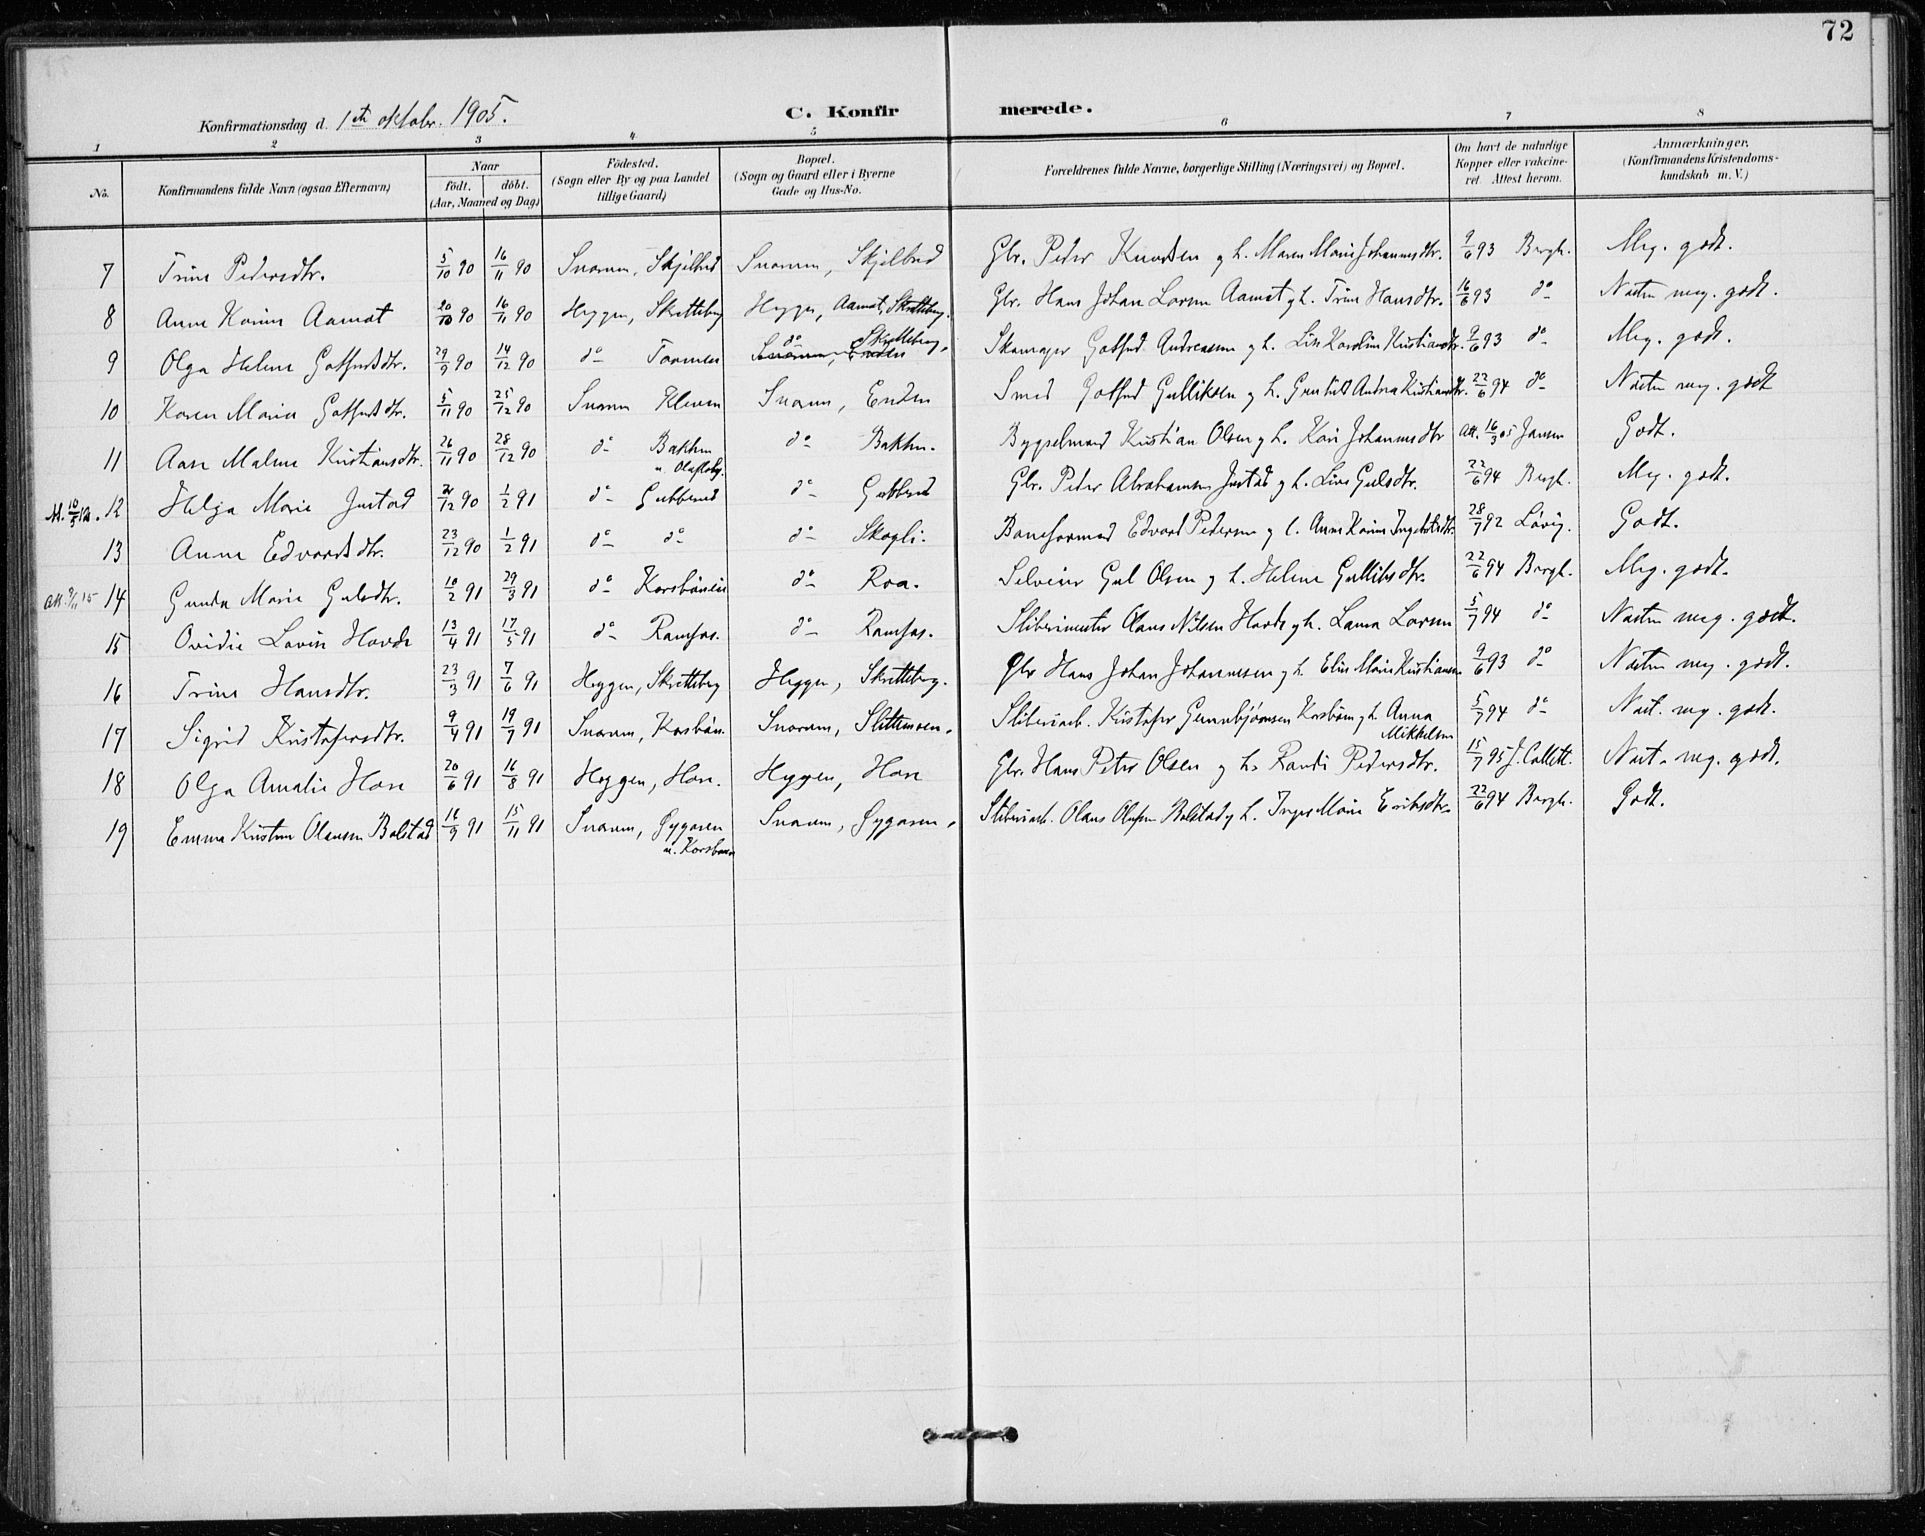 72
Konfirmationsdag d. 1ste oktobr. 1905. C. Konfirmerede.
1 2 3 4 5 6 7 8
No. Konfirmandens fulde Navn (ogsaa Efternavn) Naar födt. döbt. (Aar, Maaned og Dag) Födested. (Sogn eller By og paa Landet tillige Gaard) Bopæl. (Sogn og Gaard eller i Byerne Gade og Hus-No. Forældrenes fulde Navne, borgerlige Stilling (Næringsvei) og Bopæl. Om havt de naturlige Kopper eller vakcineret. Attest herom. Anmærkninger. (Konfirmandens Kristendomskundskab m. V.)
7 Trine Pedersdtr. 5/10 90 16/11 90 Snarum, Skjelbred Snarum, Skjelbred Gbr. Peder Knudsen og h. Maren Marie Johannesdtr. 9/6 93 Bergh. Meg. godt.
8 Anne Karine Aamot 20/10 90 16/11 90 Heggen, Skretteberg Heggen, Aamot, Skretteberg. Gbr. Hans Johan Larsen Aamot og h. Trine Hansdtr. 16/6 93 do Næsten meg. godt.
9 Olga Helene Gotfredsdtr. 29/9 90 14/12 90 do do Skretteberg. Skomager Gotfred Andreassen og h. Lise Karoline Kristiansdtr. 9/6 93 do Meg. godt.
10 Karen Marie Gotfredsdtr. 5/11 90 25/12 90 Snarum Kleven Snarum, Enden Smed Gotfred Gulliksen og h. Andrea Kristiansdtr. 22/6 94 do Næsten meg. godt
11 Aase Malene Kristiansdtr. 26/11 90 28/12 90 do Bakken u. Olafsby. do Bakken. Bygselmand Kristian Olsen og h. Kari Johannesdtr Att. 16/3 05 Jansen Godt.
12 Helga Marie Justad 21/12 90 1/2 91 do Gubberud do Gubberud Gbr. Peter Abrahamsen Justad og h. Live Gulsdtr. 22/6 94 Bergh. Meg. godt.
13 Anna Edvardsdtr. 23/12 90 1/2 91 do do do Skogli. Baneformand Edvard Pedersen og h. Anne Karine Ingebretsdtr. 28/7 92 Lövig. Godt.
Att. 9/11 15 14 Gunda Marie Gulsdtr. 10/2 91 29/3 91 do Korsbönen do Roa. Selveier Gul Olsen og h. Helene Gulliksdtr. 22/6 94 Bergh. Meg. godt.
15 Ovidie Lovise Hovde 13/4 91 17/5 91 do Ramfos. do Ramfos. Slibermester Olaus Nilsen Hovde og h. Laura Larsen 5/7 94 do Næsten meg. godt.
16 Trine Hansdtr. 23/3 91 7/6 91 Heggen, Skretteberg Heggen, Skretteberg. Gbr Hans Johan Johannessen og h Eline Marie Kristiansen 9/6 93 do Næsten meg. godt.
17 Sigrid Kristofersdtr. 9/4 91 19/7 91 Snarum, Korsbön. Snarum, Slettemoen. Sliberiarb. Kristofer Gunnbjörnsen Korsbön og h. Anna Mikkelsen 5/7 94 do Næst. meg. godt.
18 Olga Amalie Hære 20/6 91 16/8 91 Heggen, Hære. Heggen, Hære Gbr. Hans Peter Olsen og h. Randi Pedersdtr. 15/7 95 J. Collett. Næst. meg. godt.
19 Emma Kristine Olausen Bolstad 16/9 91 15/11 91 Snarum, Gygaren u. Korsbönen Snarum, Gygaren. Sliberiarb. Olaus Olafsen Bolstad og h. Inger Marie Eriksdtr. 22/6 94 Bergh. Godt.